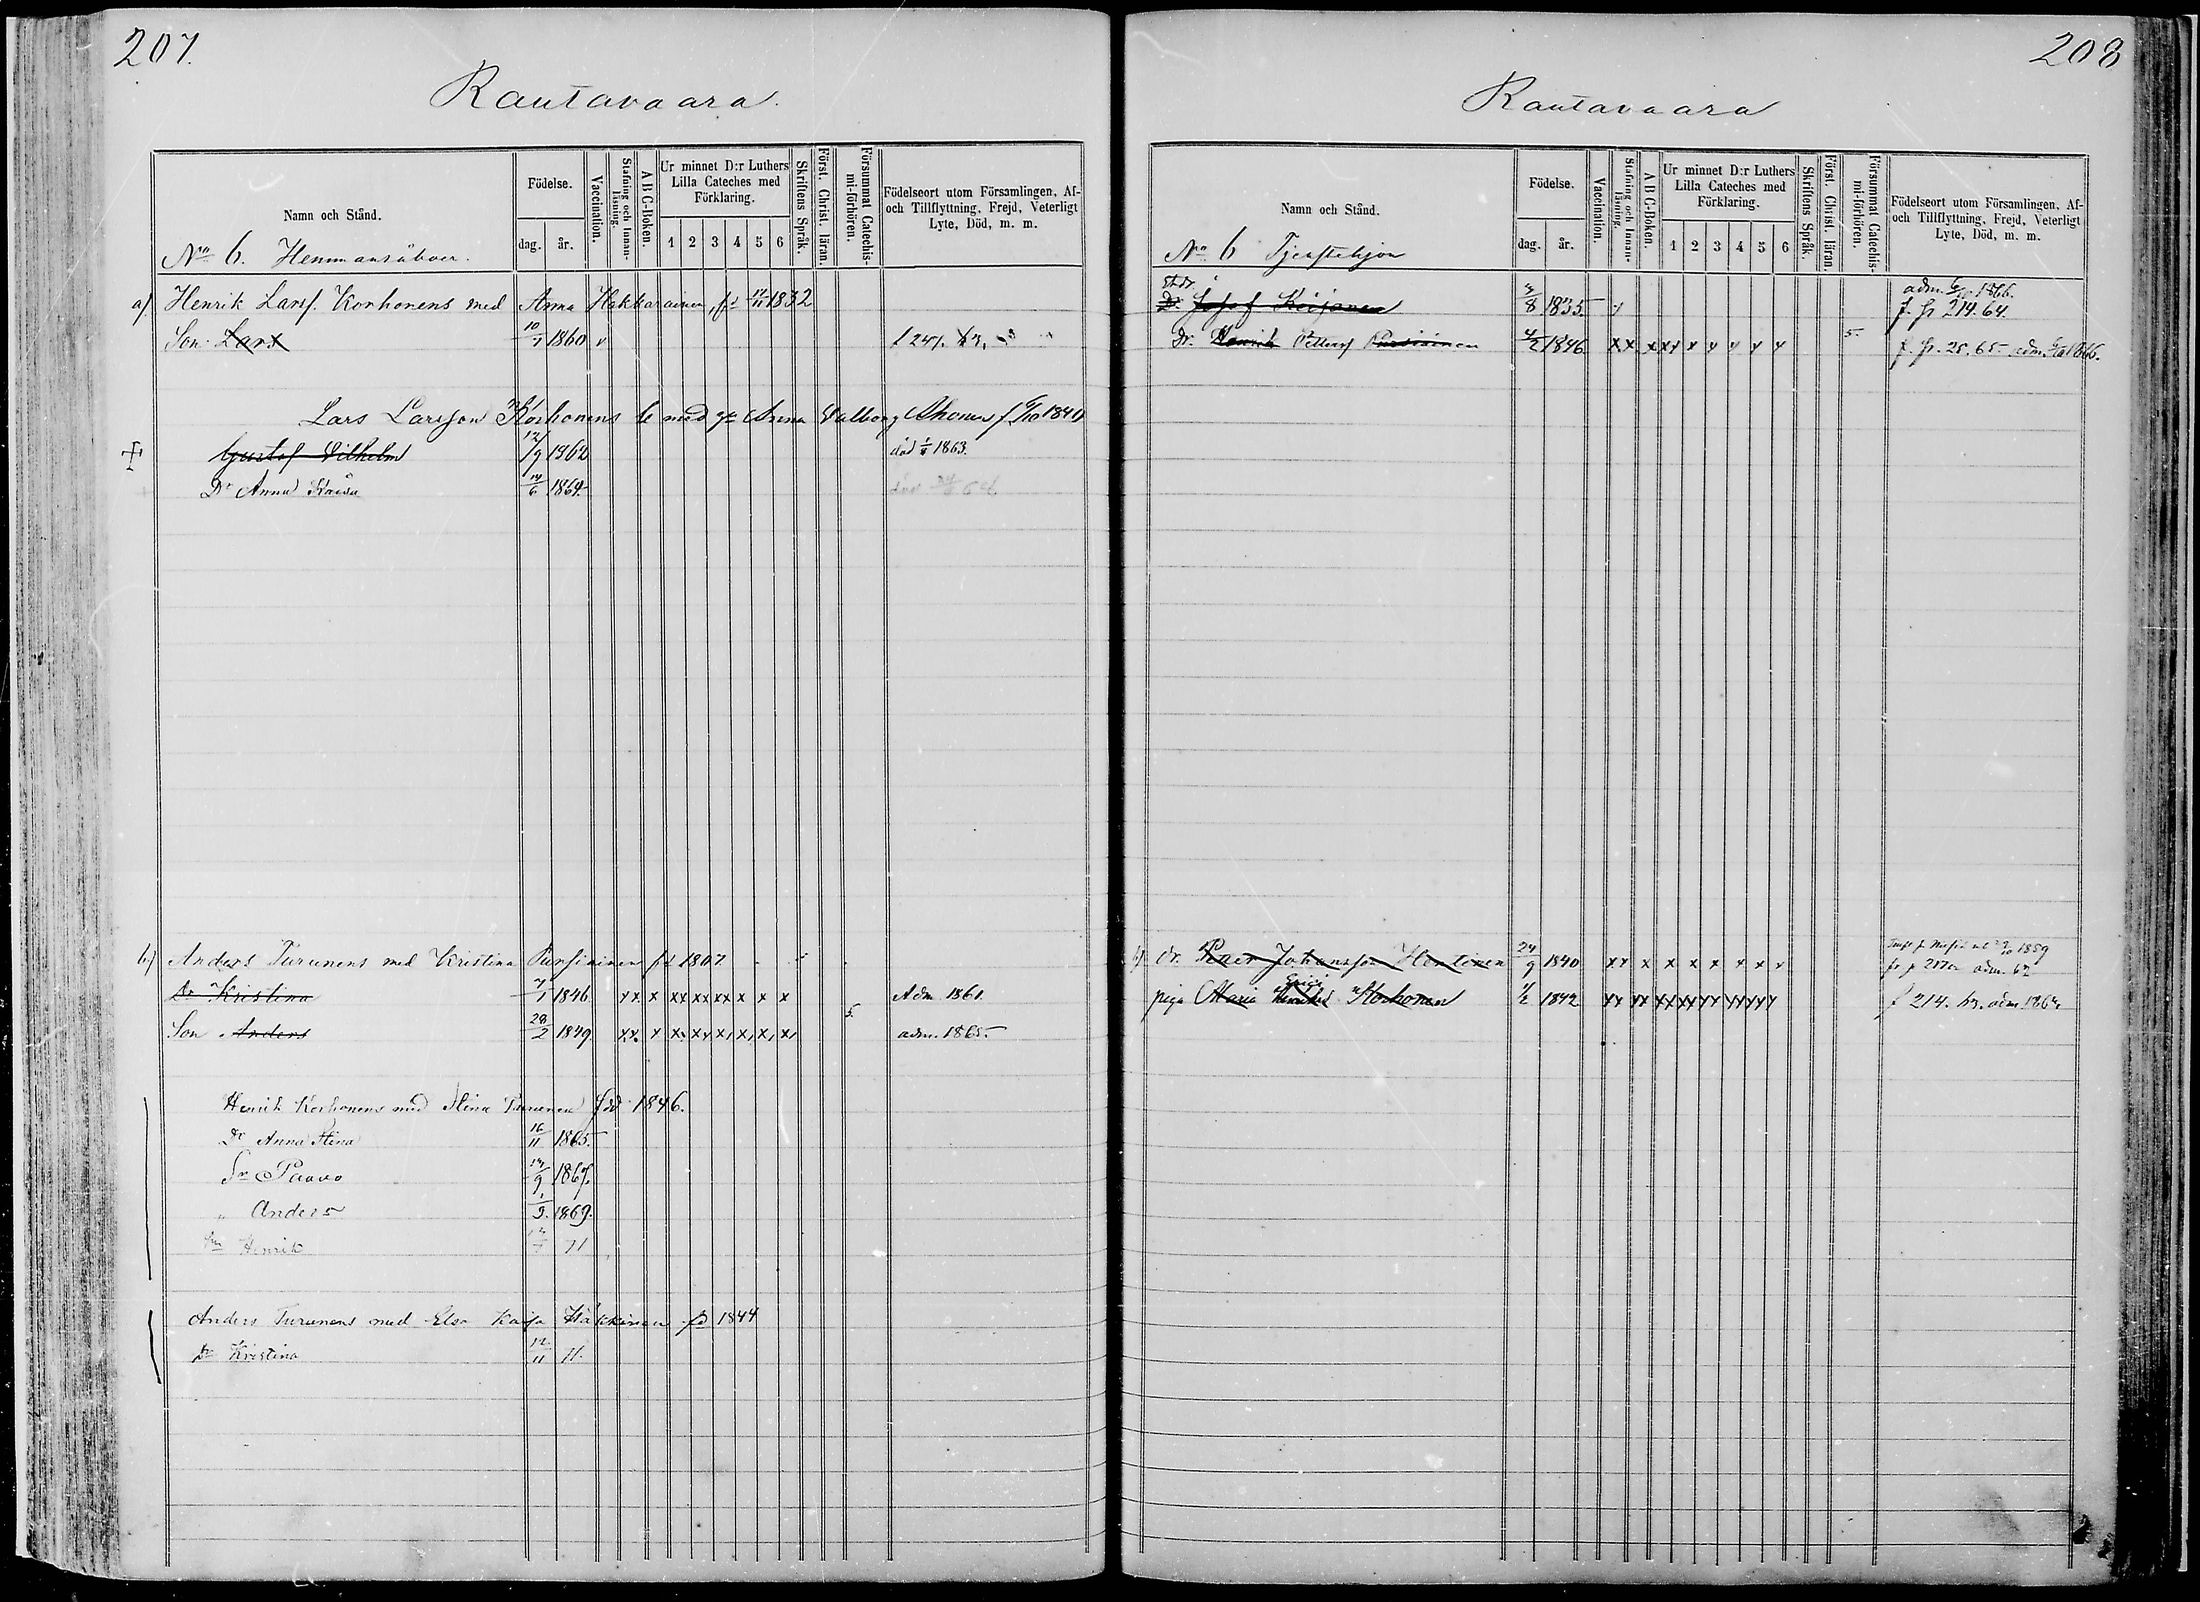 207.
Rautavaara.
Namn och Stånd.
Födelse.
dag.
år.
Vaccination.
Stafning och Innan-läsning.
A B C-Boken.
Ur minnet D:r Luthers Lilla Cateches med Förklaring.
1 2 3 4 5 6
Skriftens Språk.
Först. Christ. läran.
Försummat Catechis-mi-förhören.
Födelseort utom Församlingen, Af- och Tillflyttning, Frejd, Veterligt Lyte, Död, m. m.
No 6. Hemmansåboer.
a) Henrik Larsf. Korhonens med Anna Hakkarainen, fd 17/11 1832
Son Lars 10/7 1860 v
Lars Larsson Korhonens b med Anna Valborg Ahonen f 1840
Gustaf Vilhelm 12/9 1862 död 1863.
Dr Anna Kaisa 14/6 1864.
b) Anders Turunens med Kristina Pursiainen fd 1807.
Dr Kristina 7/1 1846 xx x xx xx xx x x x Adm. 1861
Son Anders 28/2 1849 5. adm. 1865.
Henrik Korhonens med Stina Turunen född 1846.
Dr Anna Stina 16/11 1865.
Sn Paavo 14/9 1867.
" Anders 1/9. 1869.
Sn Henrik 71
Anders Turunens med Elsa Kaisa Häkkinen fd 1844
Dr Kristina 12/11 71.
208
Rautavaara
Namn och Stånd.
Födelse.
dag.
år.
Vaccination.
Stafning och Innan-läsning.
A B C-Boken.
Ur minnet D:r Luthers Lilla Cateches med Förklaring.
1 2 3 4 5 6
Skriftens Språk.
Först. Christ. läran.
Försummat Catechis-mi-förhören.
Födelseort utom Församlingen, Af- och Tillflyttning, Frejd, Veterligt Lyte, Död, m. m.
No 6 Tjenstehjon
adm. 1866.
Josef Keijonen 3/8 1835. f. fr 214. 64.
Dr. Henrik Pettersf Pursiainen 4/2 1846 xx x xx x x x x x 5. f. fr. 25. 65. adm. 1866.
b) Dr. Peter Johansson Hentinen 24/9 1840 xx x x x x x x v 1859
adm. 62
Erici
piga Maria Henriksd Korhonen 1/2 1842 f 214. 63. adm 1864